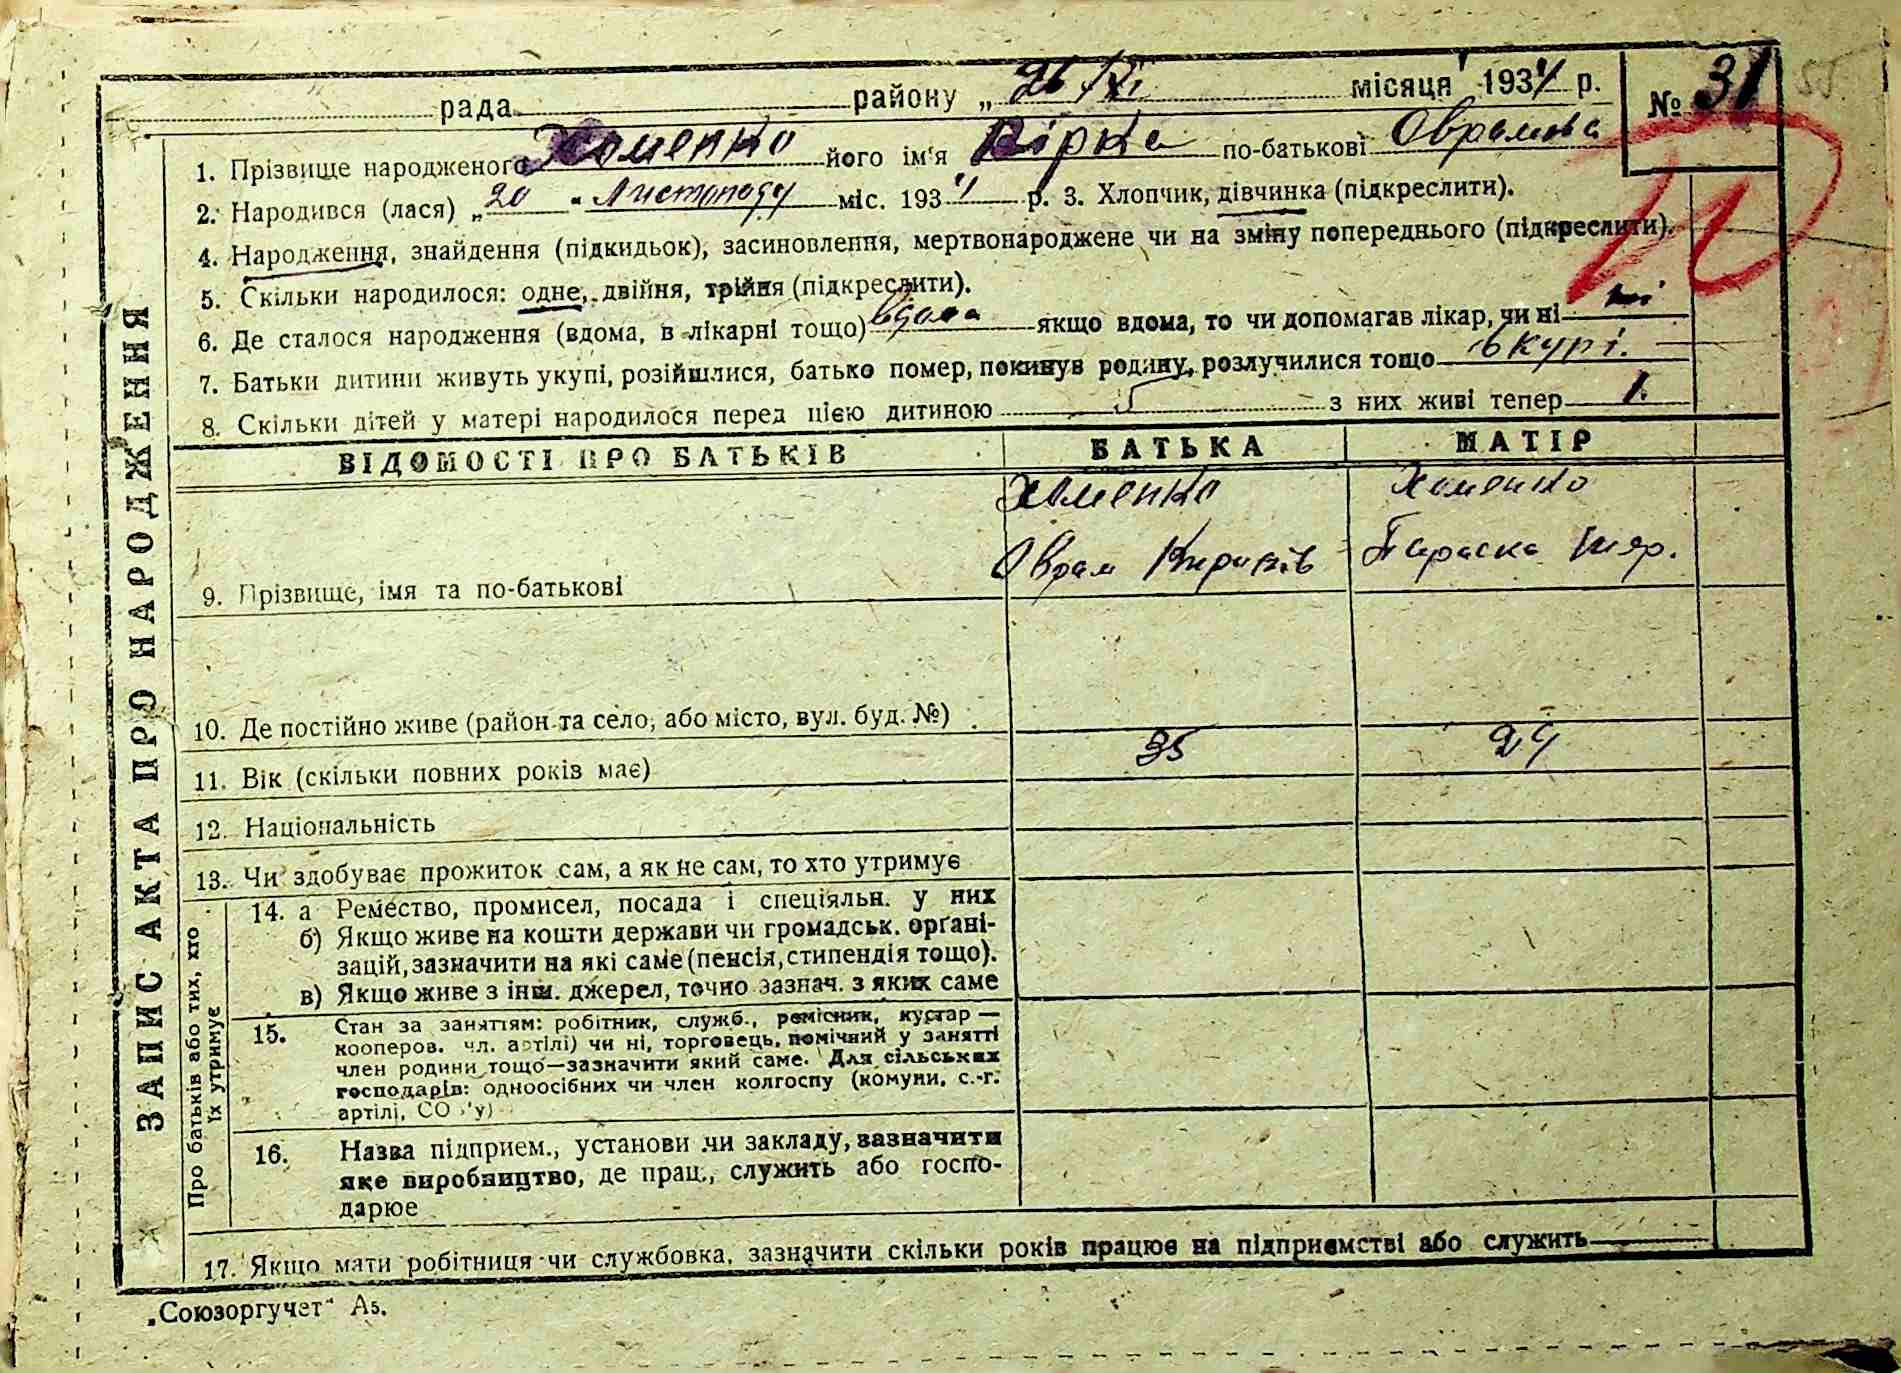 рада району „ 26 / XI місяця 1934 р. № 31
1. Прізвище народженого Хоменко його ім'я Вірка по-батькові Оврамова
2. Народився (лася) „ 20 " Листопаду міс. 1934 р. 3. Хлопчик, дівчинка (підкреслити).
4. Народження, знайдення (підкидьок), засиновлення, мертвонароджене чи на зміну попереднього (підкреслити).
5. Скільки народилося: одне, двійня, трійня (підкреслити).
6. Де сталося народження (вдома, в лікарні тощо) вдома якщо вдома, то чи допомагав лікар, чи ні ні
7. Батьки дитини живуть укупі, розійшлися, батько помер, покинув родину, розлучилися тощо вкупі.
8. Скільки дітей у матері народилося перед цією дитиною 5 з них живі тепер 1.
ЗАПИС АКТА ПРО НАРОДЖЕННЯ
ВІДОМОСТІ ПРО БАТЬКІВ БАТЬКА МАТІР
Хоменко Хоменко
Оврам Параска
9. Прізвище, імя та по-батькові
10. Де постійно живе (район та село, або місто, вул. буд. №)
11. Вік (скільки повних років має) 35 24
12. Національність
13. Чи здобуває прожиток сам, а як не сам, то хто утримує
Про батьків або тих, хто
їх утримує
14. а Ремество, промисел, посада і спеціяльн. у них
б) Якщо живе на кошти держави чи громадськ. орґані-
зацій, зазначити на які саме (пенсія, стипендія тощо).
в) Якщо живе з інш. джерел, точно зазнач. з яких саме
15. Стан за заняттям: робітник, служб., ремісник, кустар —
кооперов. чл. артілі) чи ні, торговець, помічний у занятті
член родини тощо—зазначити який саме. Для сільських
господарів: одноосібних чи член колгоспу (комуни, с.-г.
артілі, СО 'у)
16. Назва підприєм., установи чи закладу, зазначити
яке виробництво, де прац., служить або госпо-
дарює
17. Якщо мати робітниця чи службовка, зазначити скільки років працює на підприємстві або служить
„Союзоргучет" А5.